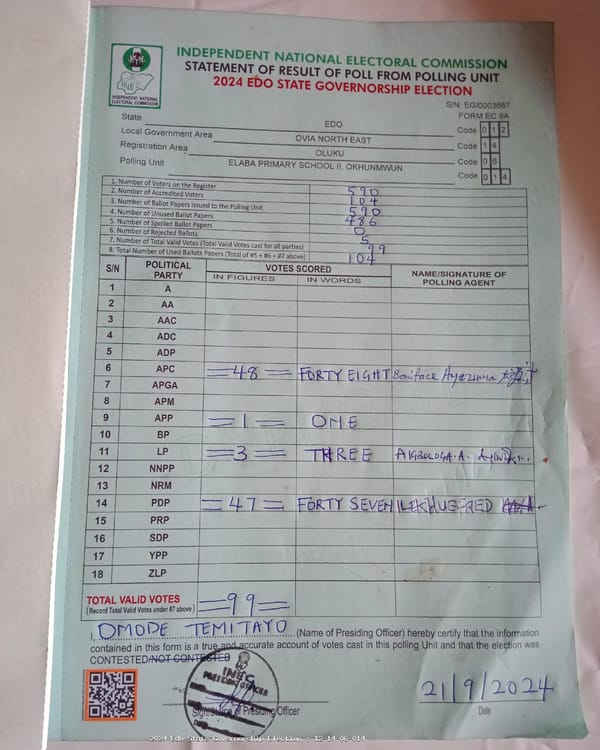 INDEPENDENT NATIONAL ELECTORAL COMMISSION
STATEMENT OF RESULT OF POLL FROM POLLING UNIT
2024 EDO STATE GOVERNORSHIP ELECTION
INEC
INDEPENDENT NATIONAL ELECTORAL COMMISSION
S/N: EG/0003667
FORM EC 8A
State EDO Code 0 1 2
Local Government Area OVIA NORTH EAST Code 1 4
Registration Area OLUKU Code 0 6
Polling Unit ELABA PRIMARY SCHOOL II, OKHUNMWUN Code 0 1 4
1. Number of Voters on the Register 590
2. Number of Accredited Voters 104
3. Number of Ballot Papers Issued to the Polling Unit 590
4. Number of Unused Ballot Papers 486
5. Number of Spoiled Ballot Papers 0
6. Number of Rejected Ballots 5
7. Number of Total Valid Votes (Total Valid Votes cast for all parties) 99
8. Total Number of Used Ballots Papers (Total of #5 + #6 + #7 above) 104
S/N POLITICAL PARTY VOTES SCORED NAME/SIGNATURE OF POLLING AGENT
IN FIGURES IN WORDS
1 A
2 AA
3 AAC
4 ADC
5 ADP
6 APC =48= FORTY EIGHT Boniface
7 APGA
8 APM
9 APP =1= ONE
10 BP
11 LP =3= THREE
12 NNPP
13 NRM
14 PDP =47= FORTY SEVEN FRED
15 PRP
16 SDP
17 YPP
18 ZLP
TOTAL VALID VOTES =99=
(Record Total Valid Votes under #7 above)
I, OMODE TEMITAYO (Name of Presiding Officer) hereby certify that the information
contained in this form is a true and accurate account of votes cast in this polling Unit and that the election was
CONTESTED/NOT CONTESTED
INEC
PRESIDING OFFICER
Signature of Presiding Officer
21/9/2024
Date
2024 Edo State Governorship Election : 12-14-06-014